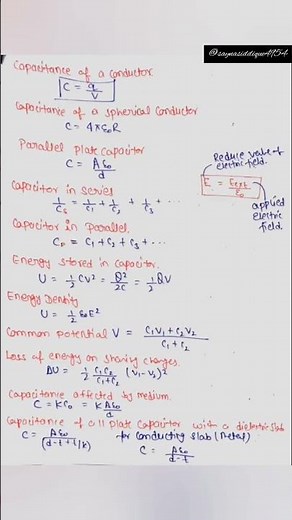 @saymasiddique4154
Capacitance of a conductor
C = q/V
Capacitance of a spherical conductor
C = 4πε₀R
Parallel plate capacitor
C = Aε₀/d
Reduce value of electric field.
E = Eext/εr
applied electric field.
Capacitor in series
1/Cs = 1/C₁ + 1/C₂ + 1/C₃ + ...
Capacitor in parallel.
Cp = C₁ + C₂ + C₃ + ...
Energy stored in capacitor.
U = 1/2 CV² = Q²/2C = 1/2 QV
Energy Density
U = 1/2 ε₀E²
Common potential V = C₁V₁ + C₂V₂ / C₁ + C₂
Loss of energy on sharing charges.
ΔU = 1/2 C₁C₂/C₁+C₂ (V₁-V₂)²
Capacitance affected by medium.
C = KC₀ = K Aε₀/d
Capacitance of a || plate Capacitor with a dielectric slab
C = Aε₀/(d-t+t/K)
for Conducting slab (Metal)
C = Aε₀/d-t